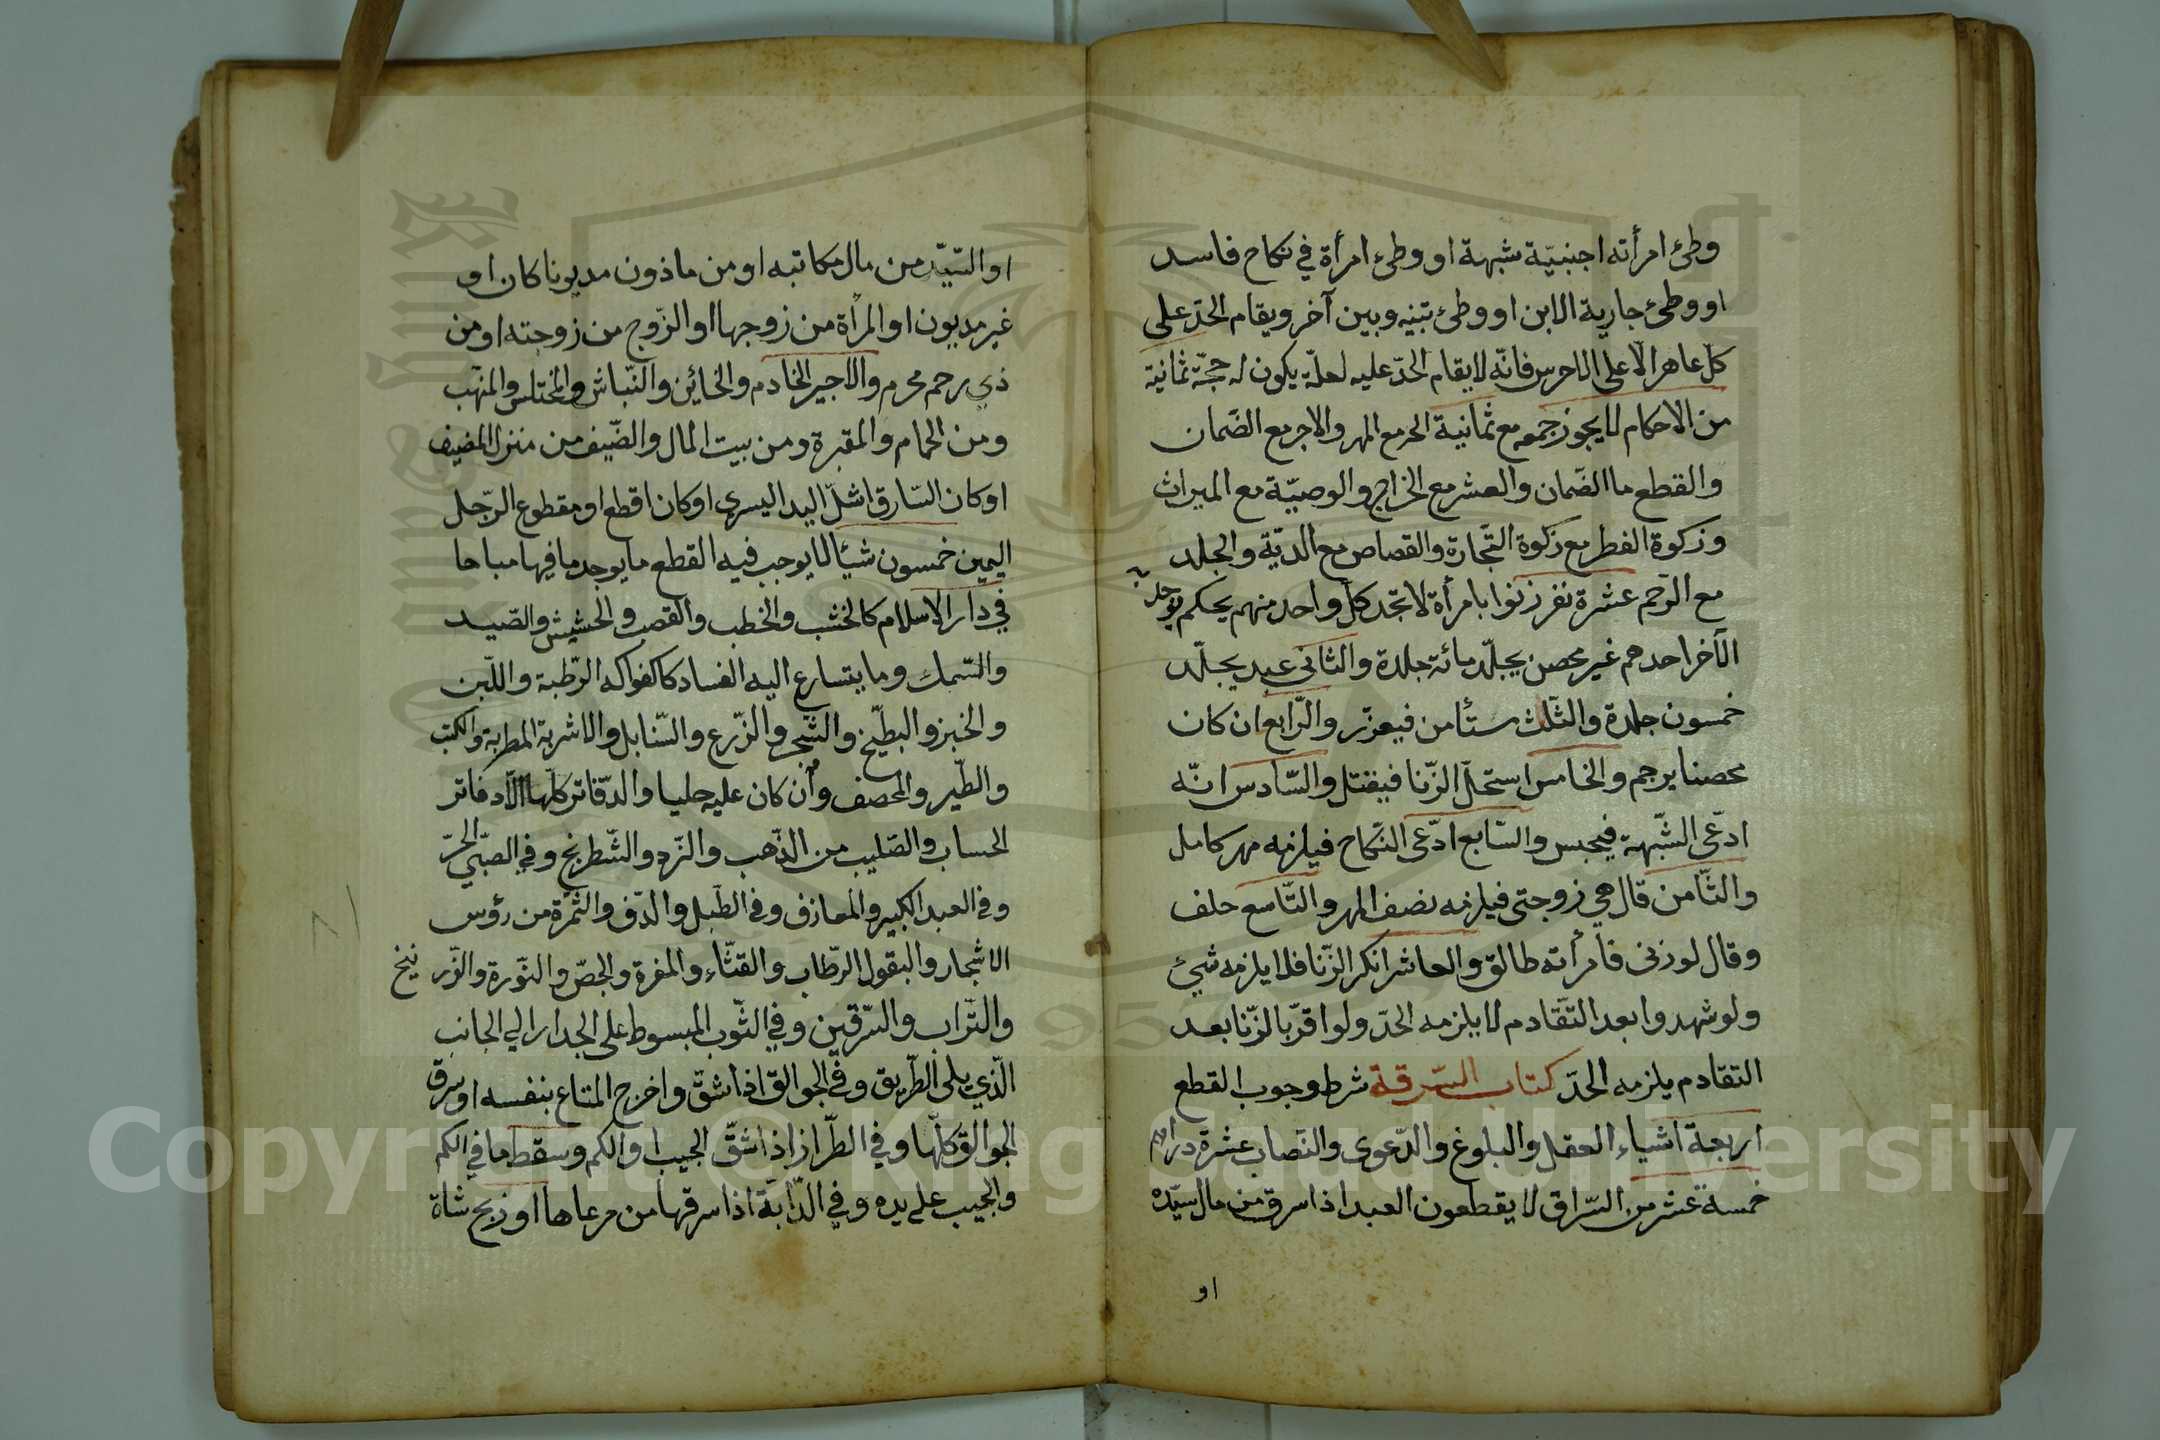 وطئ امرأته اجنبيّة شبهة او وطئ امرأة في نكاح فاسد
او وطئ جارية الابن او وطئ بينه وبين آخر ويقام الحدّ على
كلّ عاهر الّا على الاخرس فانّه لا يقام الحدّ عليه لعلّة يكون له حجّة ثمانية
من الاحكام لا يجوز جمعه مع ثمانية الحد مع المهر والاجر مع الضّمان
والقطع ما الضّمان والعشر مع الخراج والوصيّة مع الميراث
وزكوة الفطر مع زكوة التّجارة والقصاص مع الديّة والجلد
مع الرّجم عشرة نفر زنوا بامرأة لا تجد كلّ واحد منهم يحكم
الآخر احدهم غير محصن يجلّد مائة جلدة والثانى عبد يجلّد
خمسون جلدة والثّلث ستأمن فيعزّر والرّابع ان كان
محصنا يرجم والخامس استحلّ الزّنا فيقتل والسّادس انّه
ادّعى الشّبهة فيحبس والسّابع ادّعى النّكاح فيلزمه مهر كامل
والثّامن قال هي زوجتى فيلزمه نصف المهر والتّاسع حلف
وقال لو زنى فامرأته طالق والعاشر انكر الزّنا فلا يلزمه شئ
ولو شهدوا بعد التّقادم لا يلزمه الحدّ ولو اقرّ بالزّنا بعد
التقادم يلزمه الحدّ كتاب السّرقة شرط وجوب القطع
اربعة اشياء العقل والبلوغ والدّعوى والنّصاب عشرة دراهم
خمسة عشر من السّراق لا يقطعون العبد اذا سرق من مال سيّده
او
او السّيّد من مال مكاتبه او من ماذون مديونا كان او
غير مديون او المرأة من زوجها او الزّوج من زوجته او من
ذي رحم محرم والاجير الخادم والخائن والنّباش والمختلس والمنهب
ومن الحمام والمقبرة ومن بيت المال والضّيف من منزل المضيف
او كان السّارق اشلّ اليد اليسرى او كان اقطع او مقطوع الرّجل
اليمين خمسون شيئا لا يوجب فيه القطع ما يوجد ما فيها مباحا
في دار الاسلام كالخشب والحطب والقصب والحشيش والصّيد
والسّمك وما يتسارع اليه الفساد كالفواكه الرّطبة واللّبن
والخبز والبطّيخ والشّجر والزّرع والسّنابل والاشربة المطربة والكتب
والطّير والمصحف وأن كان عليه حليا والدّفاتر كلّها الّا دفاتر
الحساب والصّليب من الذّهب والنّرد والشّطرنج وفي الصبّي الحرّ
وفي العبد الكبير والمعازف وفي الطّبل والدّف والثّمرة من رؤس
الاشجار والبقول الرطّاب والقثّاء والمغرة والجصّ والنّورة والزّر نيخ
والتّراب والسّرقين وفي الثّوب المبسوط على الجدار الي الجانب
الّذي يلى الطّريق وفي الجوالق اذا شقّ واخرج المتاع بنفسه او سرق
الجوالق كلّها وفي الطّرّاز اذا شقّ الجيب او الكم وسقط ما في الكم
والجيب على يده وفي الدّابّة اذا سرقها من مرعاها او ذبح شاة
Copyright © King Saud University